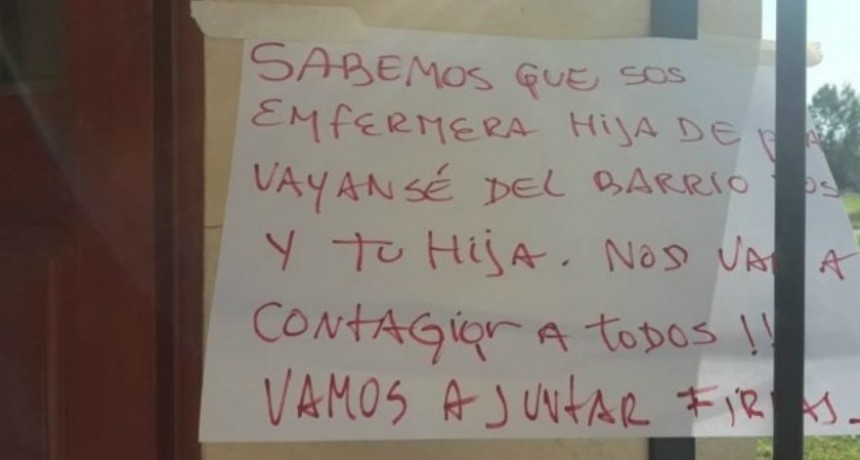 SABEMOS QUE SOS
EMFERMERA HIJA DE
VAYANSÉ DEL BARRIO
Y TU HIJA. NOS VAN A
CONTAGIAR A TODOS!!
VAMOS A JUNTAR FIRMAS